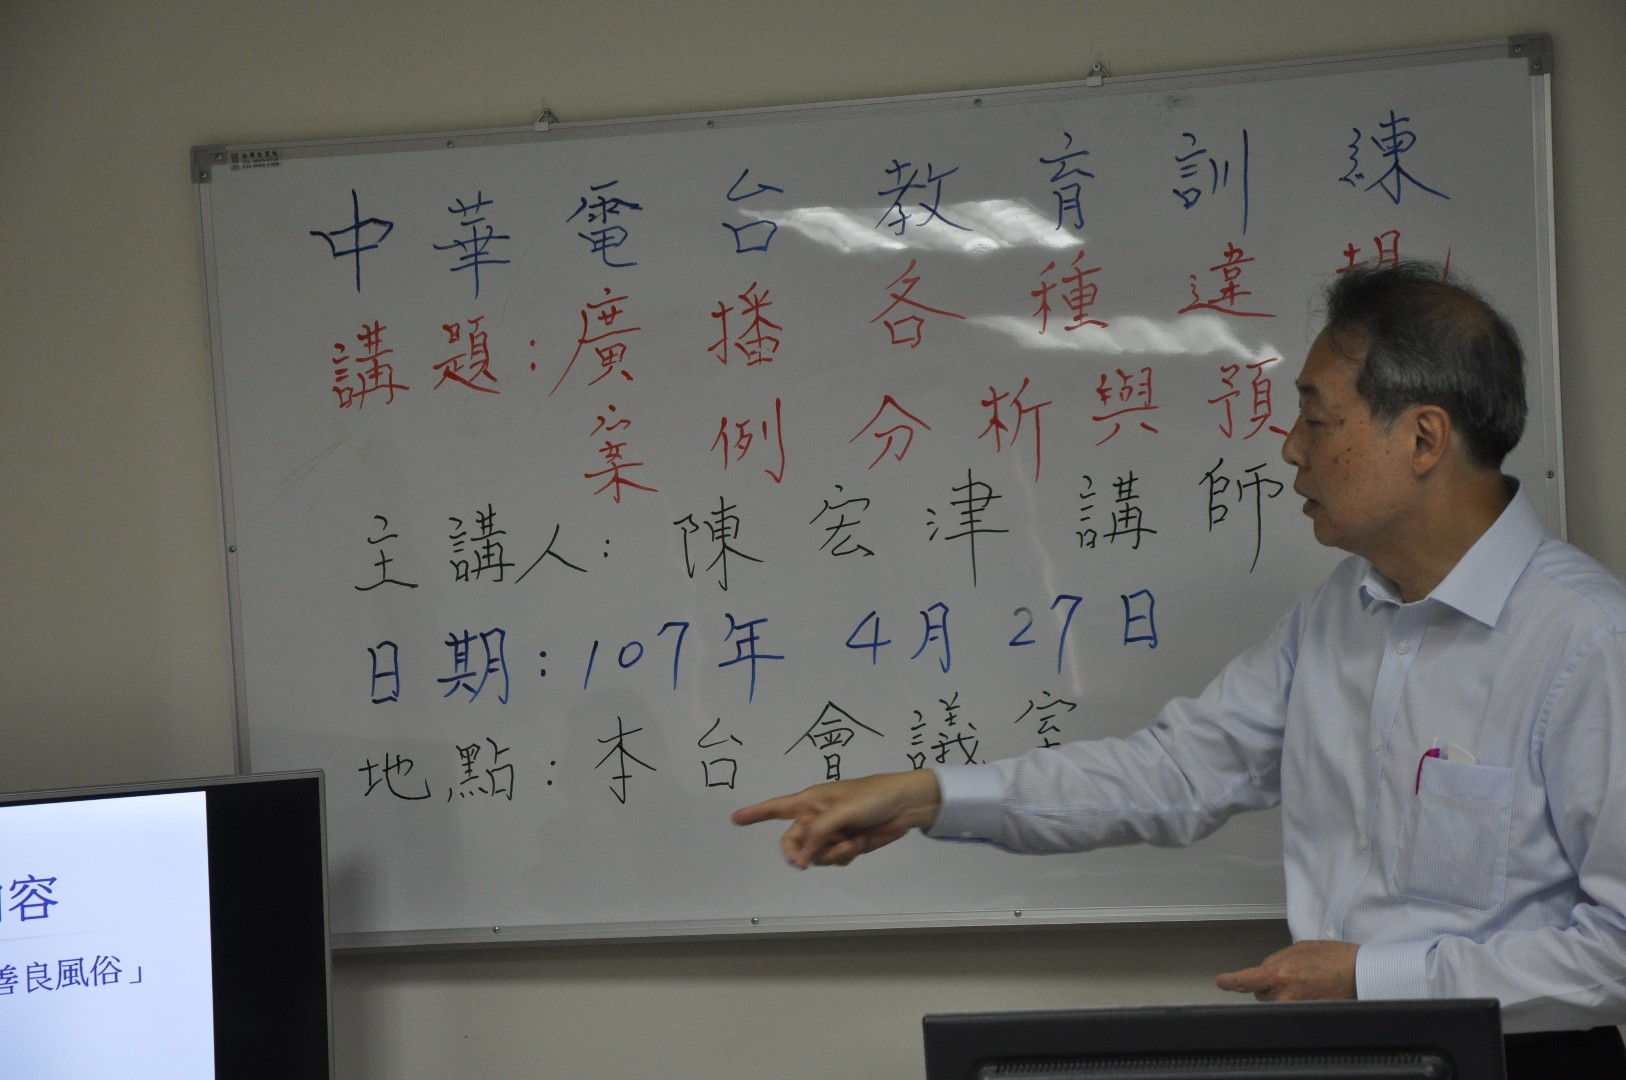 中華電台教育訓練
講題:廣播各種違規
案例分析與預
主講人:陳宏津講師
日期:107年 4月 27日
地點:本台會議室
容
善良風俗」